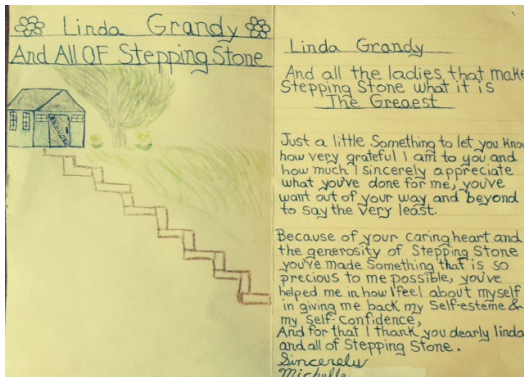 Linda Grandy
And All OF Stepping Stone
Linda Grandy
And all the ladies that make
Stepping Stone what it is
The Greaest
Just a little Something to let you Know
how very grateful I am to you and
how much I sincerely appreciate
what you've done for me, you've
want out of your way and beyond
to say the very least.
Because of your caring heart and
the generosity of Stepping Stone
you've made Something that is so
precious to me possible, you've
helped me in how I feel about myself
in giving me back my Self-esteme &
my Self-Confidence,
And for that I thank you dearly linda
and all of Stepping Stone.
Sincerely
Michelle